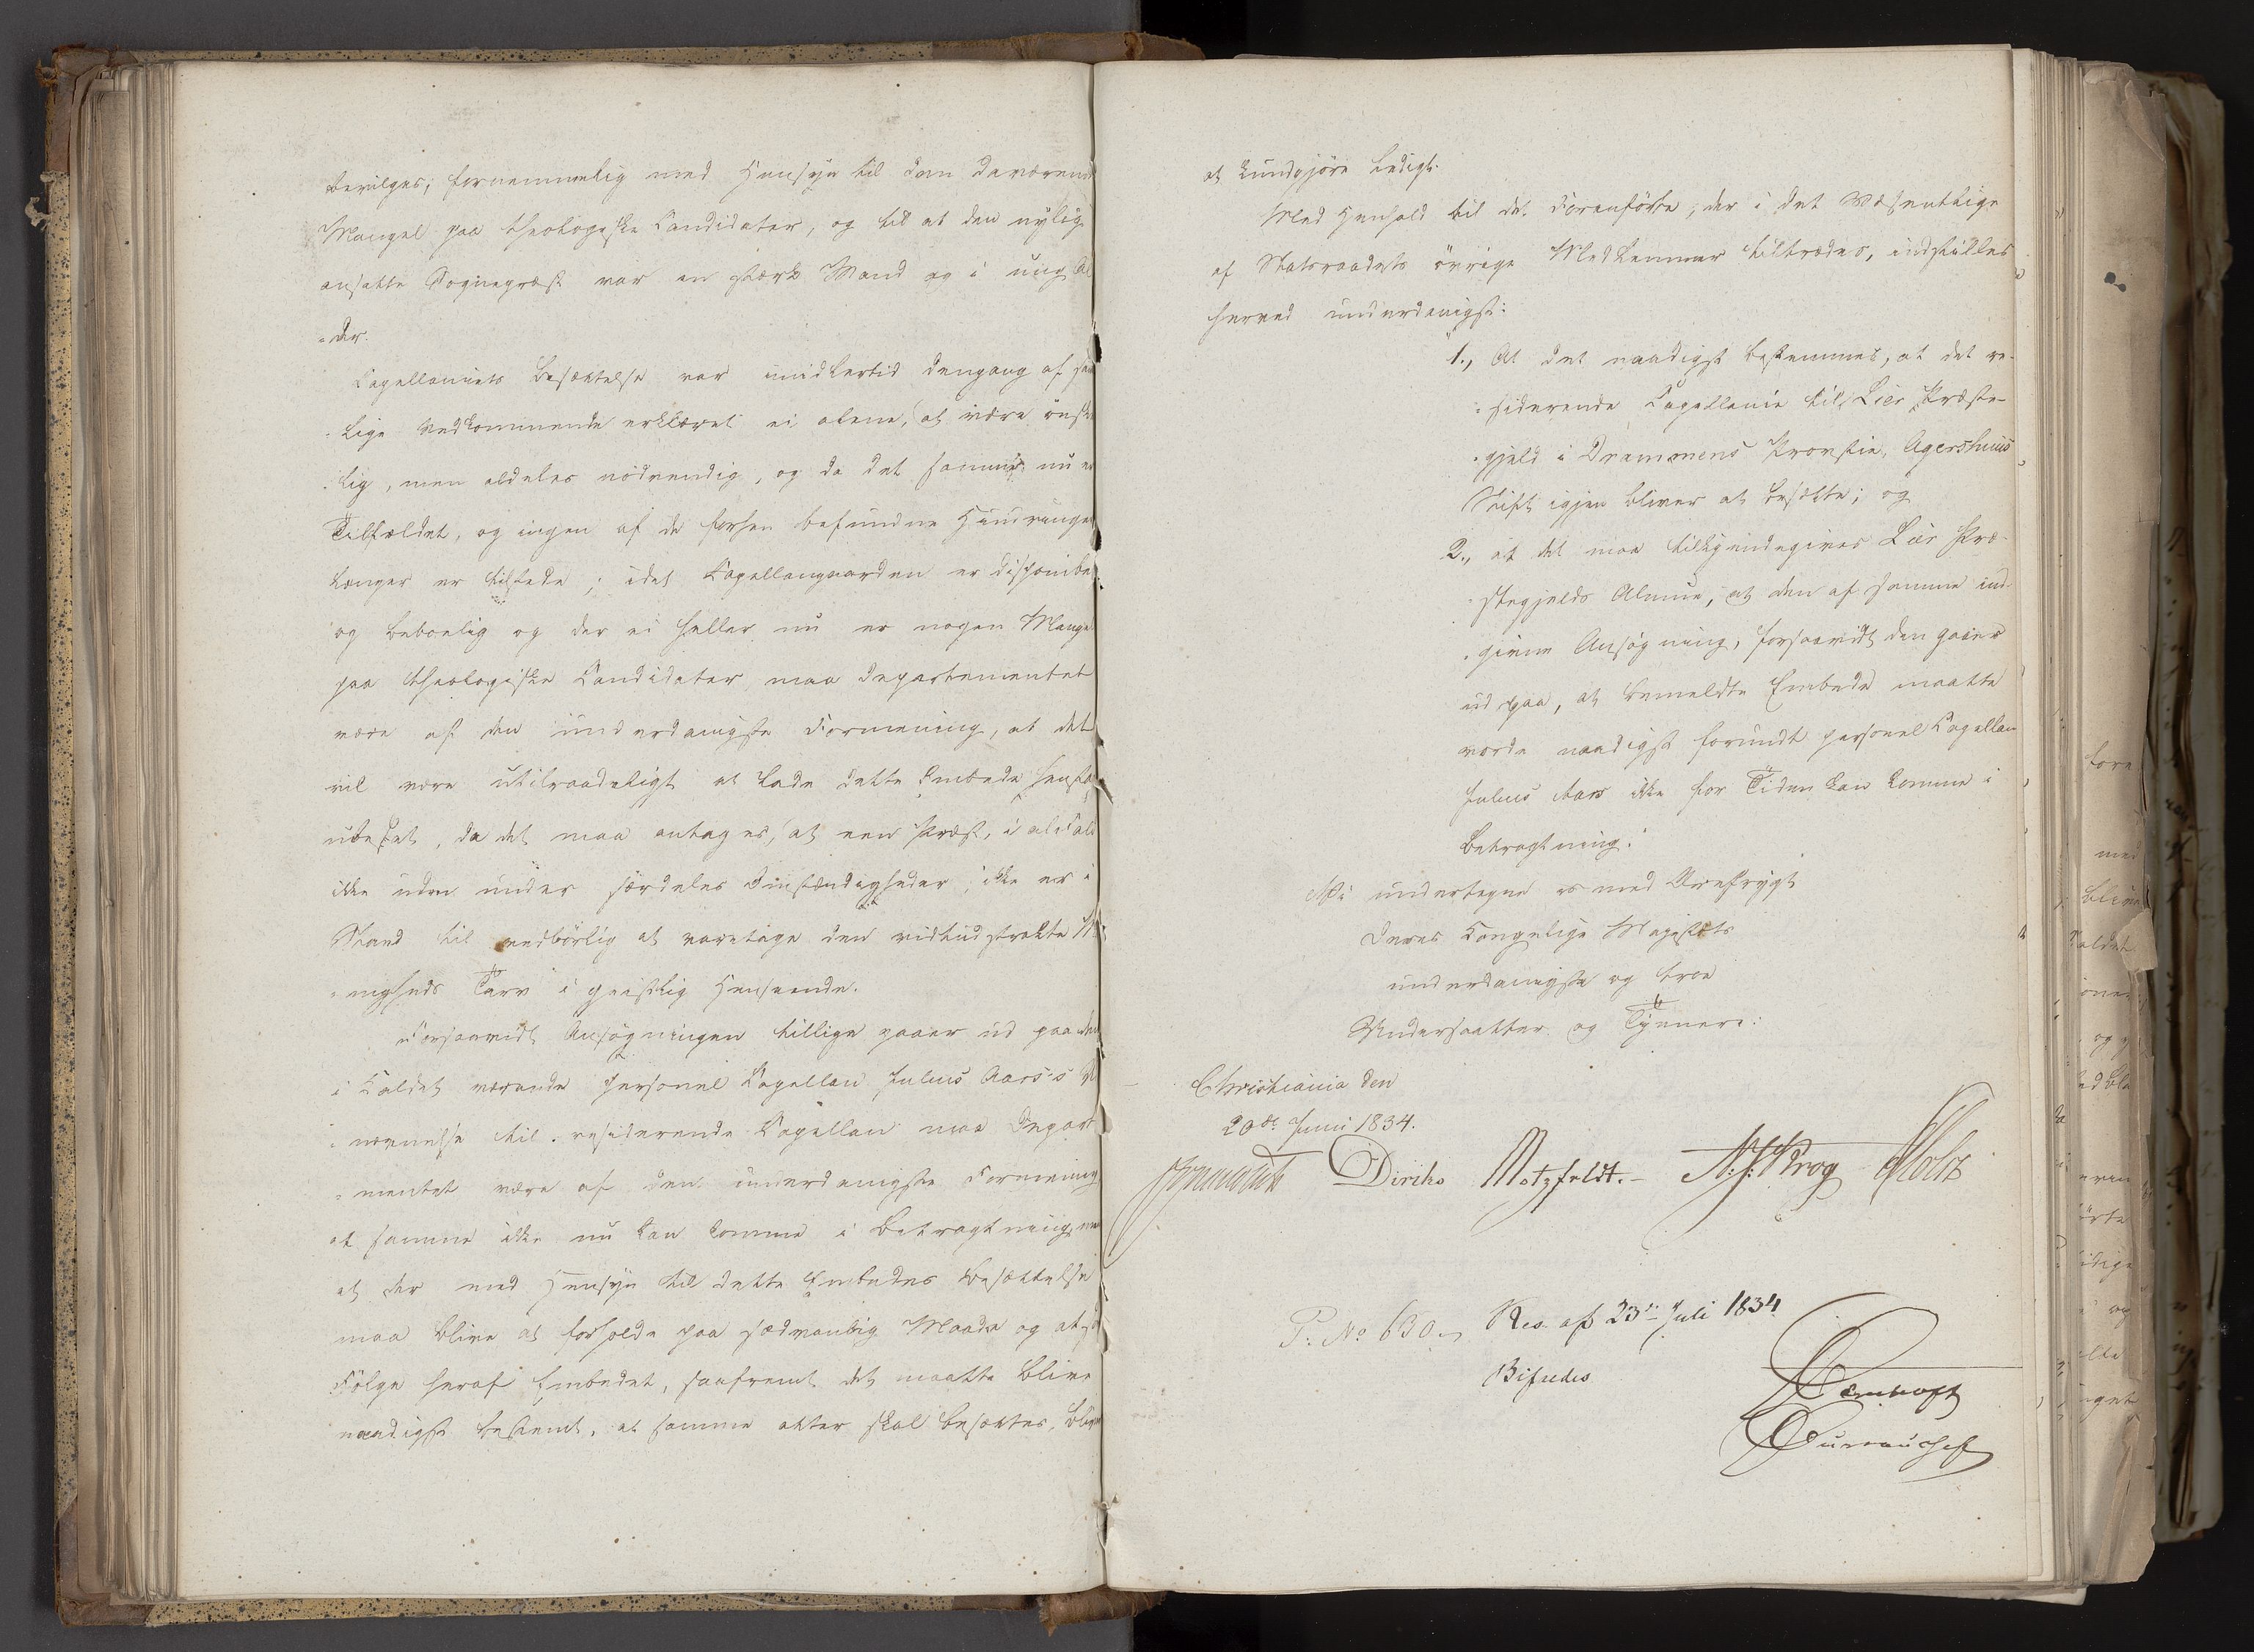 bevilges; fornemmelig med Hensyn til den daværende
Mangel paa theologiske Candidater, og til at den nylig
ansatte Sognepræst var en stærk Mand og i ung Al
-der.
Capellaniets Besættelse var imidlertid dengang af
-lige Vedkommende erklæret ei alene, at være önske
-lig, men aldeles nödvendig, og da det samme nu er
Tilfældet, og ingen af de forhen befundne Hindringer
længer er tilstede; idet Capellangaarden er disponibel
og beboelig og der ei heller nu er nogen Mangel
paa theologiske Candidater maa Departementet
være af den underdanigste Formening, at det
vil være utilraadeligt at lade dette Embede henstaa
ubesat, da det maa antages, at een Præst, i al Fald
ikke uden under særdeles Omstændigheder, ikke er i
Stand til vedbörlig at varetage den vidtudstrakte Me
-nigheds Tarv i geistlig Henseende.
Forsaavidt Ansögningen tillige gaaer ud paa den
i Kaldet værende personel Capellan Julius Aars's Ud
-nævnelse til residerende Capellan maa Departe
-mentet være af den underdanigste Formening
at samme ikke nu kan komme i Betragtning, men
at der med Hensyn til dette Embedes Besættelse
maa blive at forholde paa sædvanlig Maade og at
Fölge heraf Embedet, saafremt det maatte blive
naadigst bestemt, at samme atter skal besættes, bliver
at kundgjöre ledigt.
Med Henhold til det Foranförte, der i det Væsentlige
af Statsraadets övrige Medlemmer tiltrædes, indstilles
herved underdanigst:
1., At det naadigst bestemmes, at det re-
-siderende Capellanie til Lier Præste-
-gjeld i Drammens Provstie, Agershuus
Stift igjen bliver at besætte; og
2., at det maa tilkjendegives Lier Præ-
-stegjelds Almue, at den af samme ind-
-givne Ansögning, forsaavidt den gaaer
ud paa, at bemeldte Embede maatte
vorde naadigst forundt personel Capellan
Julius Aars ikke for Tiden kan komme i
Betragtning.
Vi undertegne os med Ærefrygt
Deres Kongelige Majestæts
underdanigste og troe
Undersaatter og Tjenere:
Christiania den
20de Juni 1834.
Diriks Motzfeldt.- Krog Holst
P. No 630. Res. af 23de Juli 1834
Bifaldes
Bureauchef